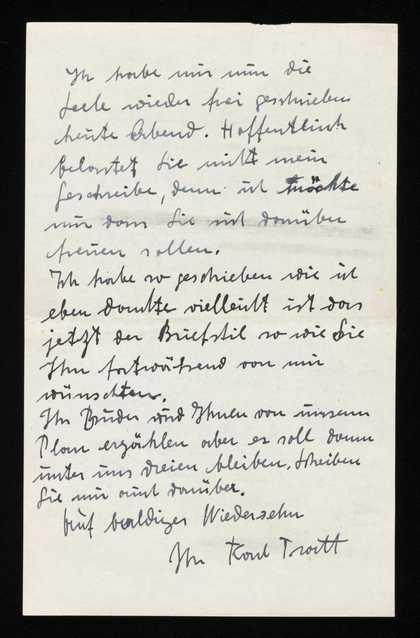 Ich habe mir nun die
Seele wieder frei geschrieben
heute Abend. Hoffentlich
belastet Sie nicht mein
Geschreibe, denn ich möchte
nur dass Sie sich darüber
freuen sollen.
Ich habe so geschrieben wie ich
eben denke vielleicht ist das
jetzt der Briefstil so wie Sie
Ihn fortwährend von mir
wünschten.
Ihr Bruder wird Ihnen von unserm
Plan erzählen aber es soll dann
unter uns dreien bleiben. Schreiben
Sie mir auch darüber.
Auf baldiges Wiedersehn
Ihr Karl